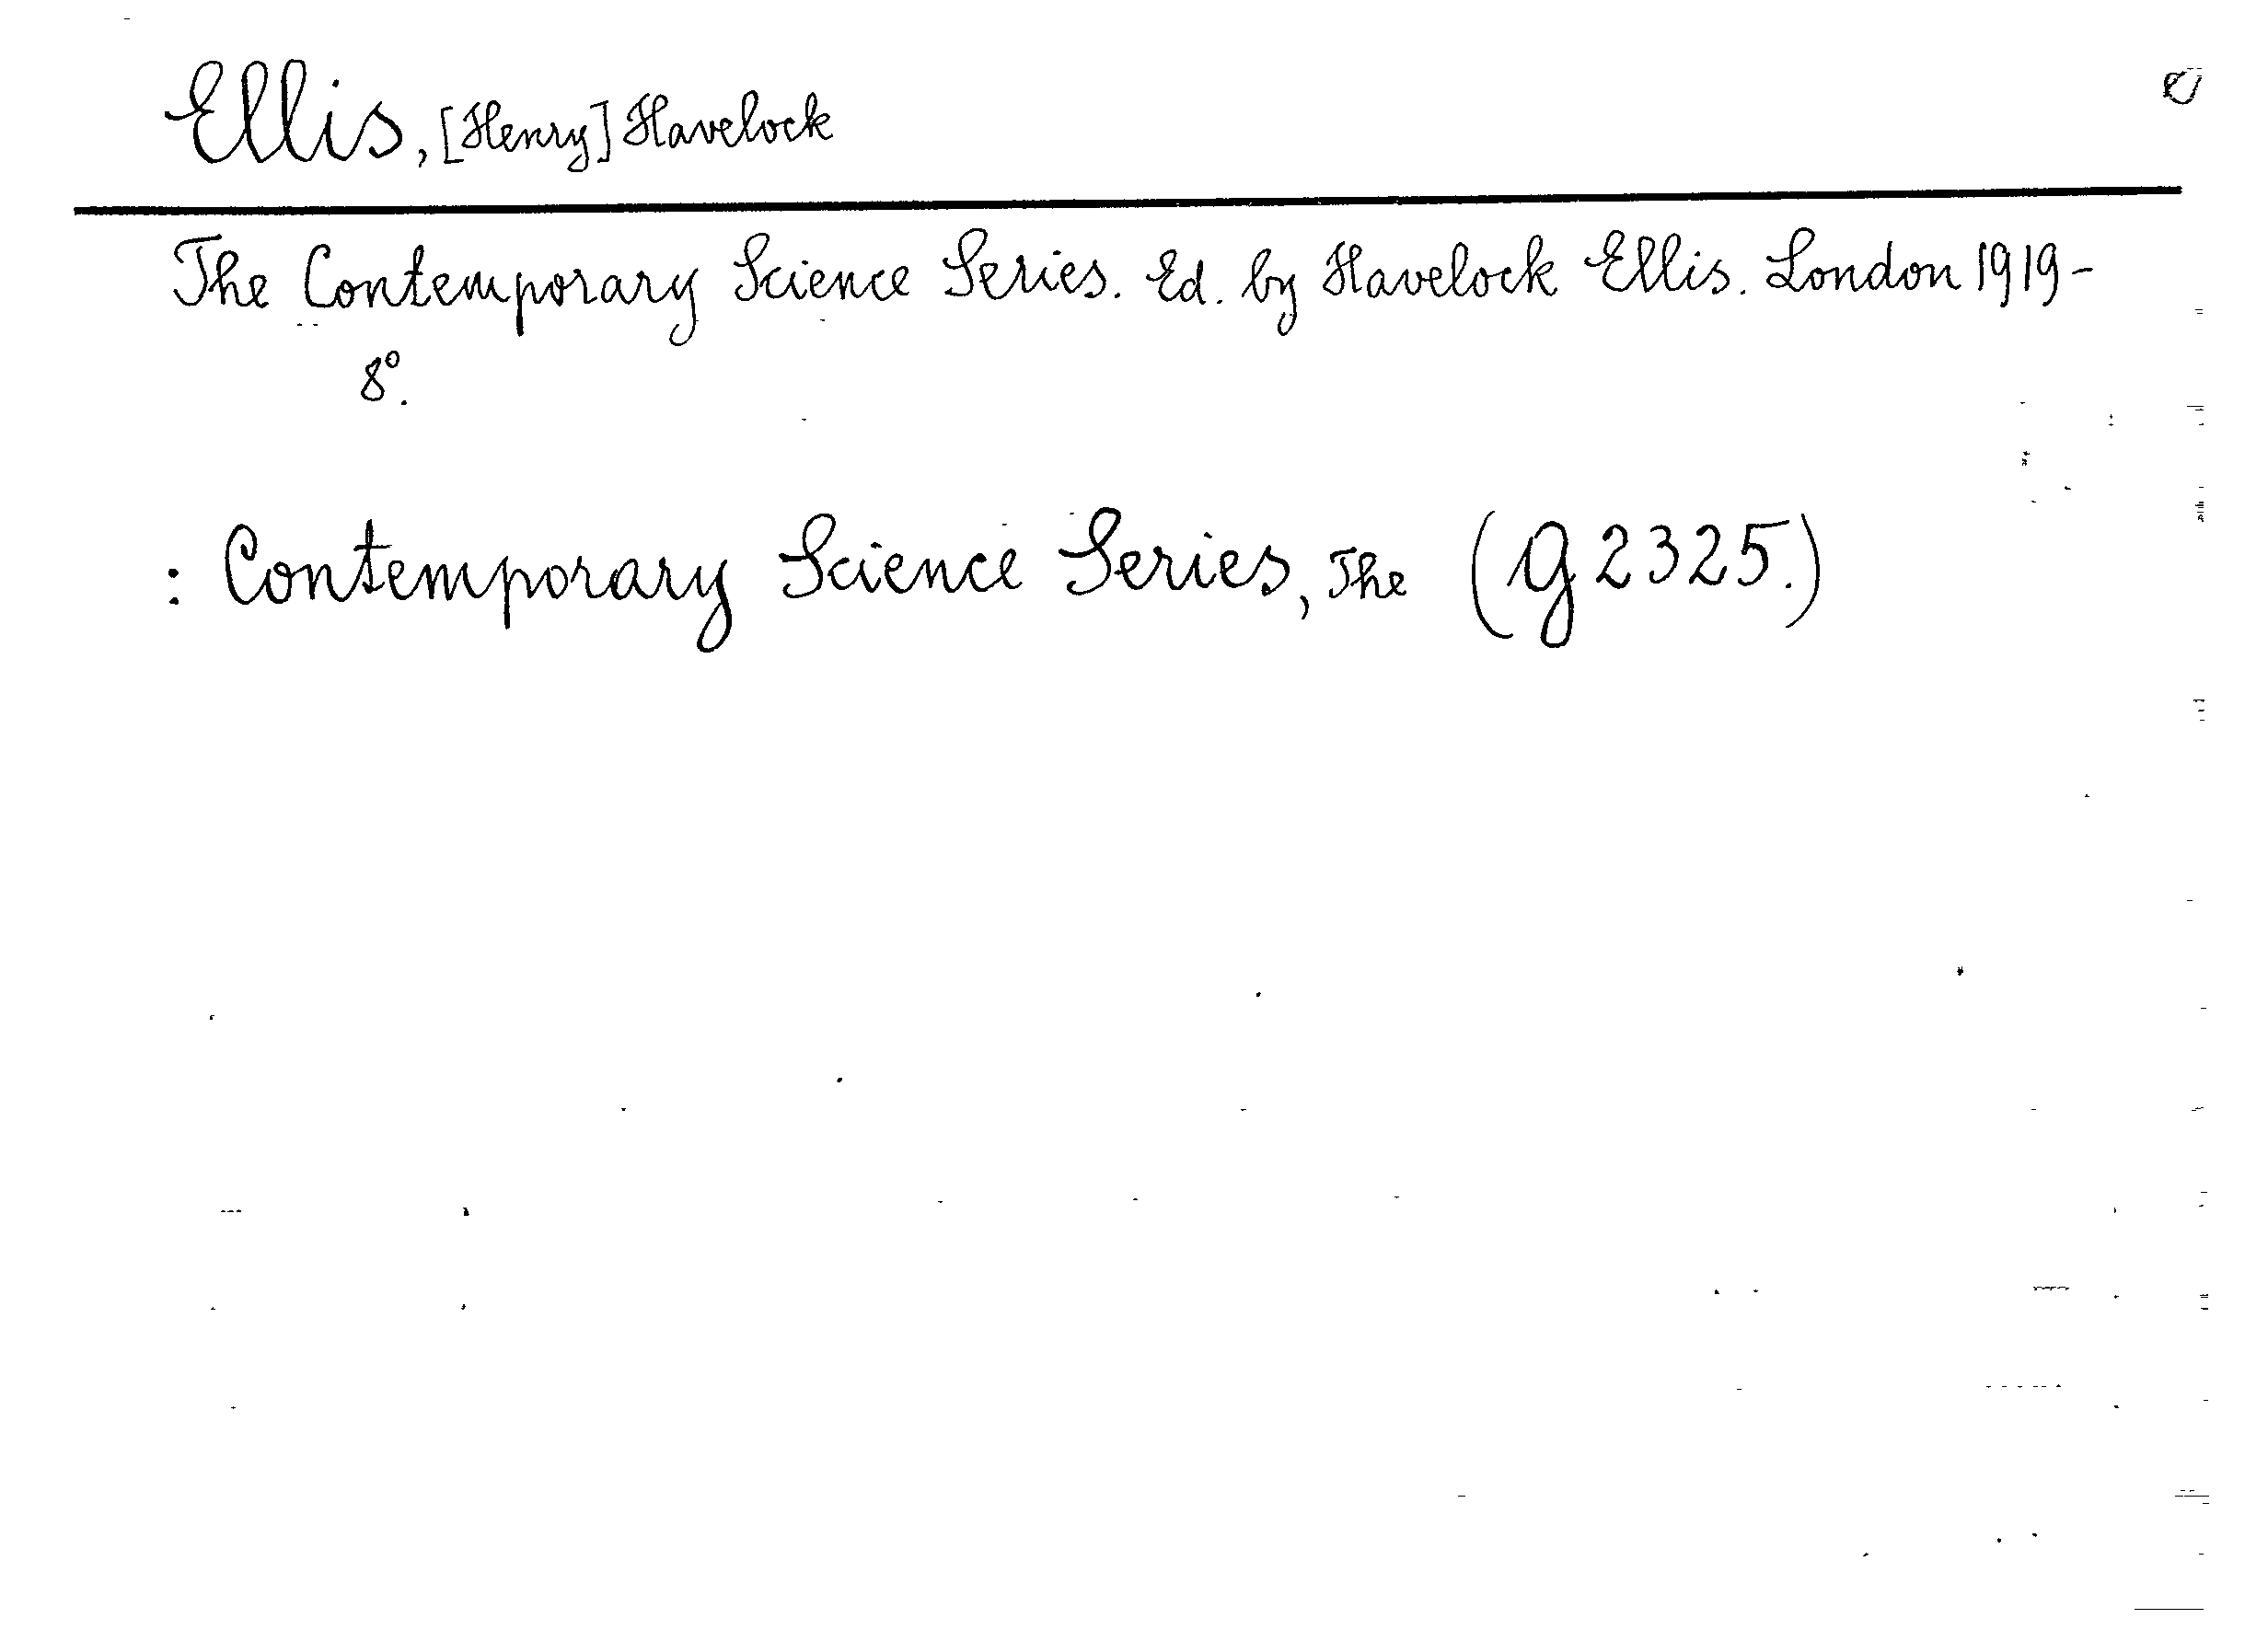 Ellis, [Henry] Havelock
The Contemporary Science Series. Ed. by Havelock Ellis. London 1919-
8°.
: Contemporary Science Series, The (G 2325.)